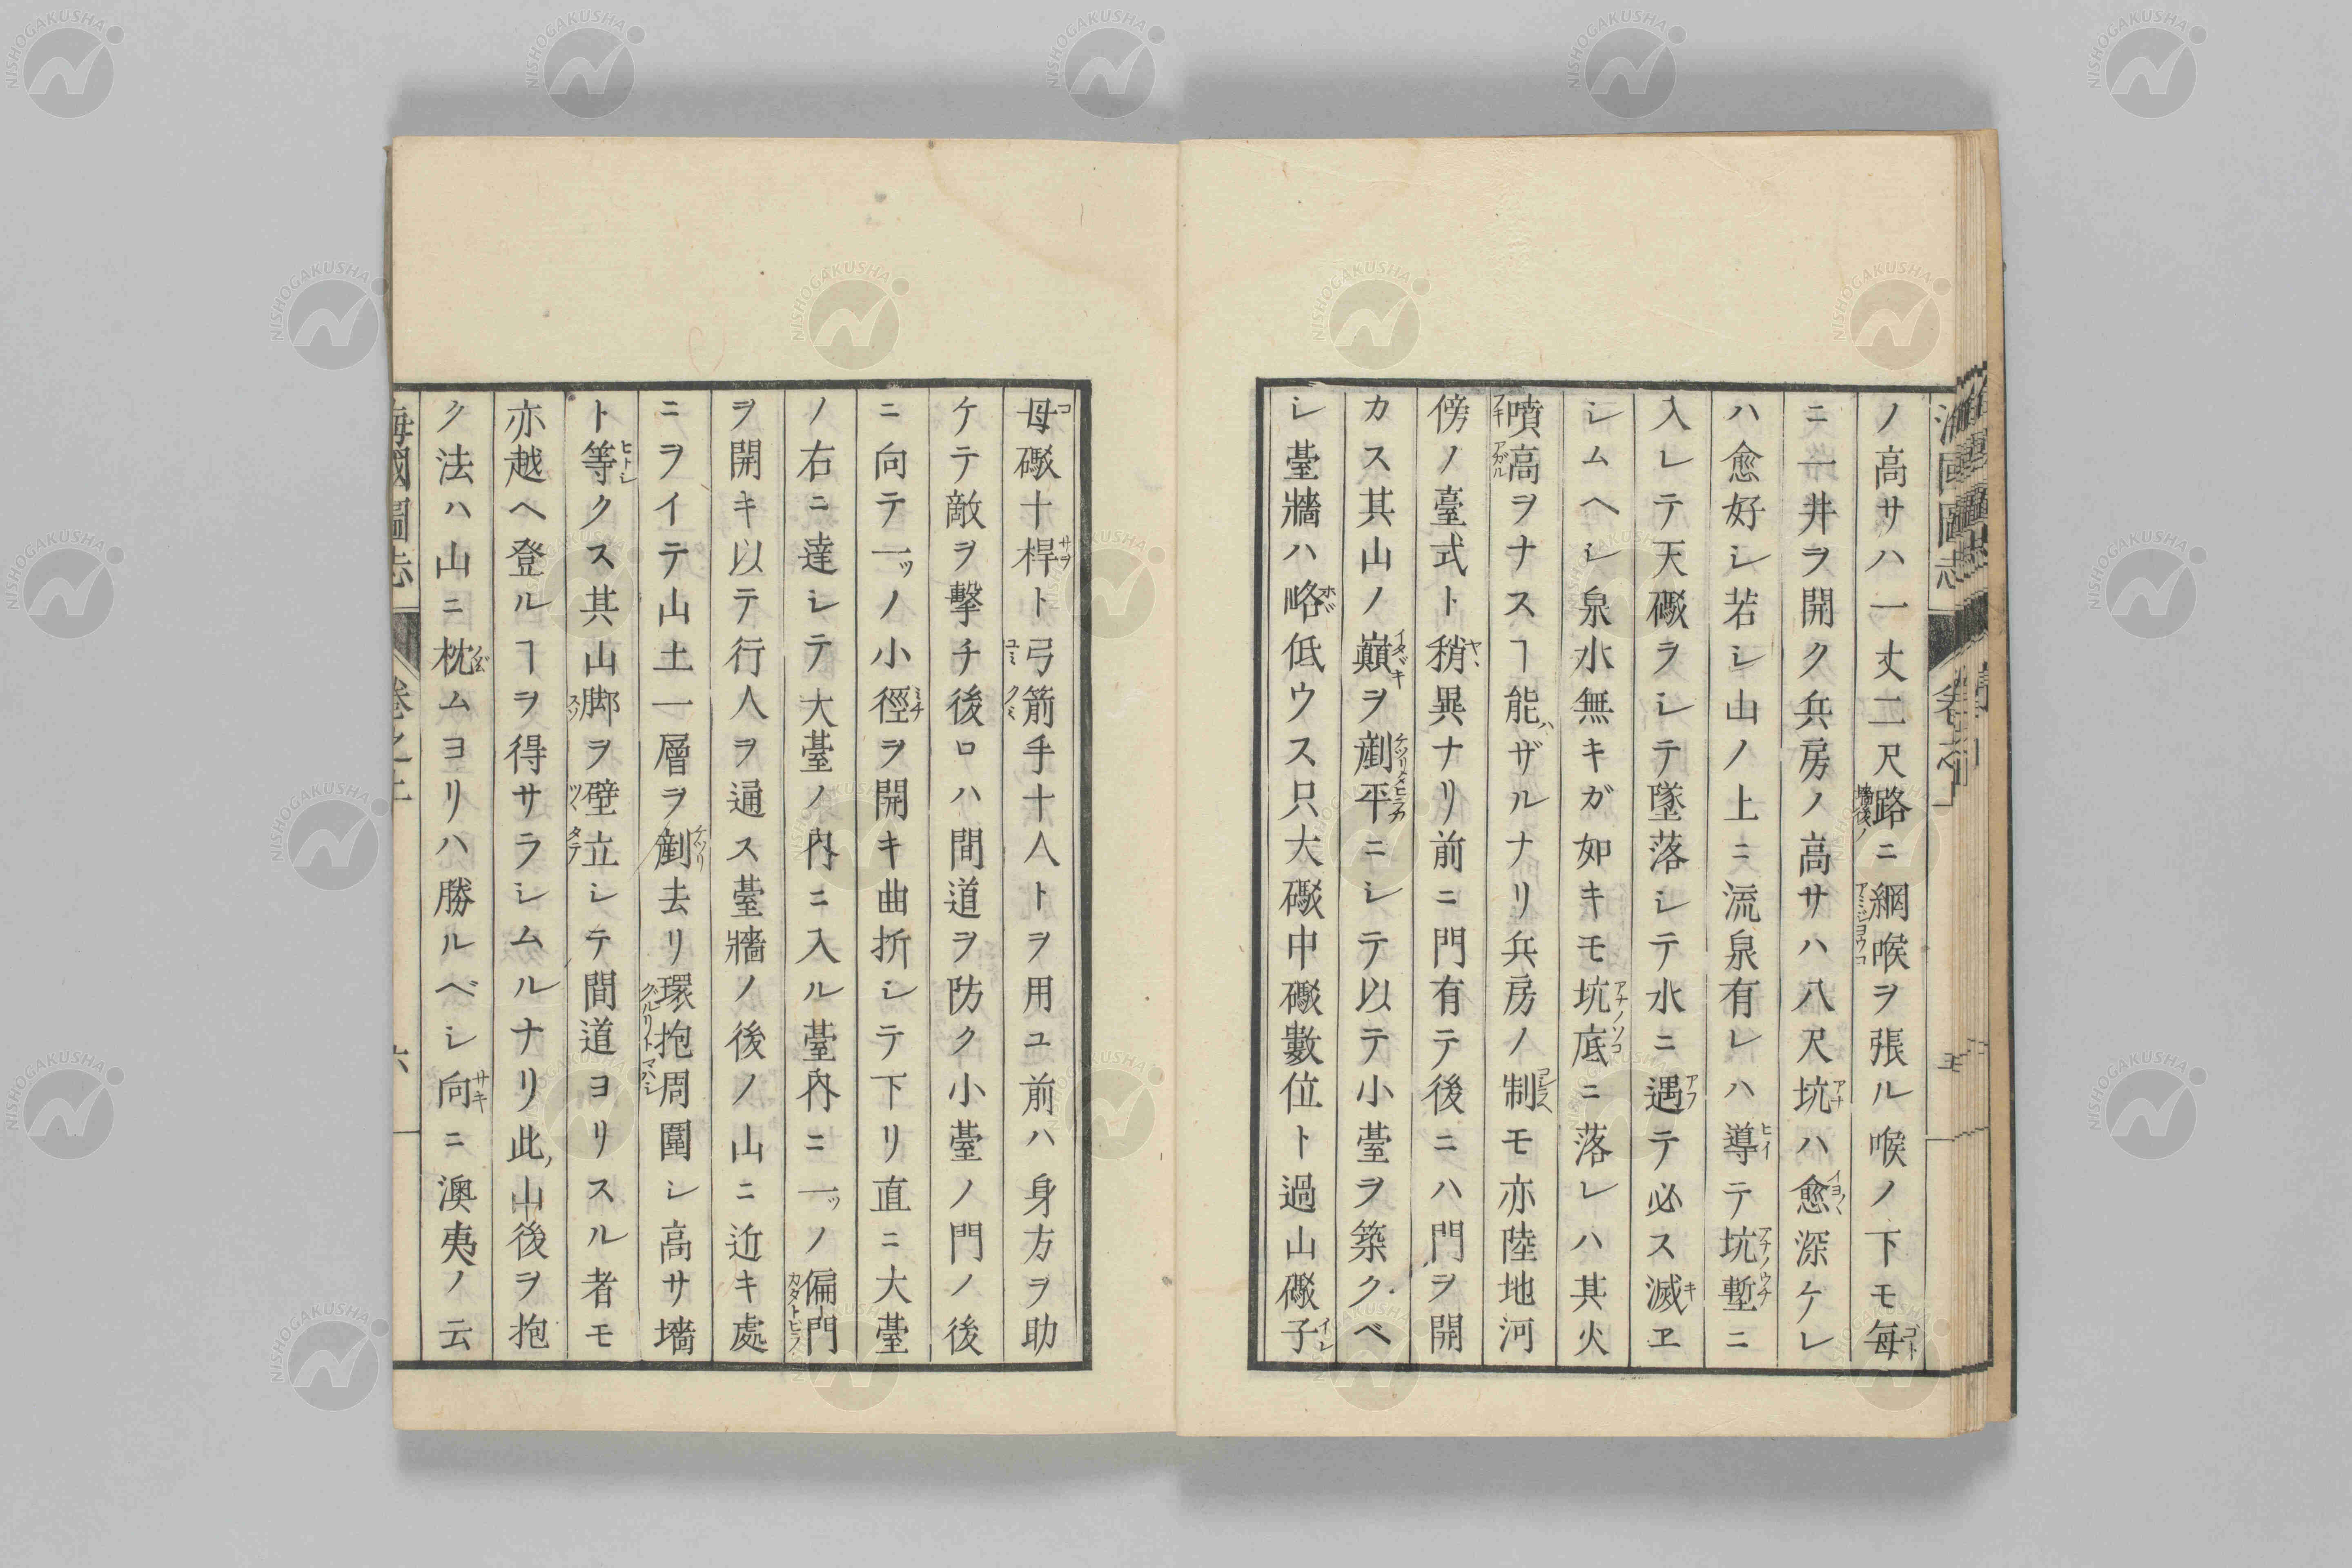 ノ高サハ一丈二尺路ニ網喉ヲ張ル喉ノ下モ毎
ニ一井ヲ開ク兵房ノ高サハ八尺坑ハ愈深ケレ
ハ愈好シ若シ山ノ上ニ流泉有レハ導テ坑塹ニ
入レテ天礮ヲシテ墜落シテ水ニ遇テ必ス滅ヱ
シムヘシ泉水無キガ如キモ坑底ニ落レハ其火
噴高ヲナスヿ能ハザルナリ兵房ノ制モ亦陸地河
傍ノ臺式ト稍異ナリ前ニ門有テ後ニハ門ヲ開
カス其山ノ巓ヲ剷平ニシテ以テ小臺ヲ築クベ
シ臺牆ハ略低ウス只大礮中礮數位ト過山礮子
母礮十桿ト弓箭手十人トヲ用ユ前ハ身方ヲ助
ケテ敵ヲ擊チ後ロハ間道ヲ防ク小臺ノ門ノ後
ニ向テ一ッノ小徑ヲ開キ曲折シテ下リ直ニ大臺
ノ右ニ達シテ大臺ノ內ニ入ル臺內ニ一ッノ偏門
ヲ開キ以テ行人ヲ通ス臺牆ノ後ノ山ニ近キ處
ニヲイテ山土一層ヲ剷去リ環抱周圍シ高サ墻
ト等クス其山脚ヲ壁立シテ間道ヨリスル者モ
亦越ヘ登ルヿヲ得サラシムルナリ此山後ヲ抱
ク法ハ山ニ枕ムヨリハ勝ルベシ向ニ澳夷ノ云
海國圖志
NISHOGAKUSHA